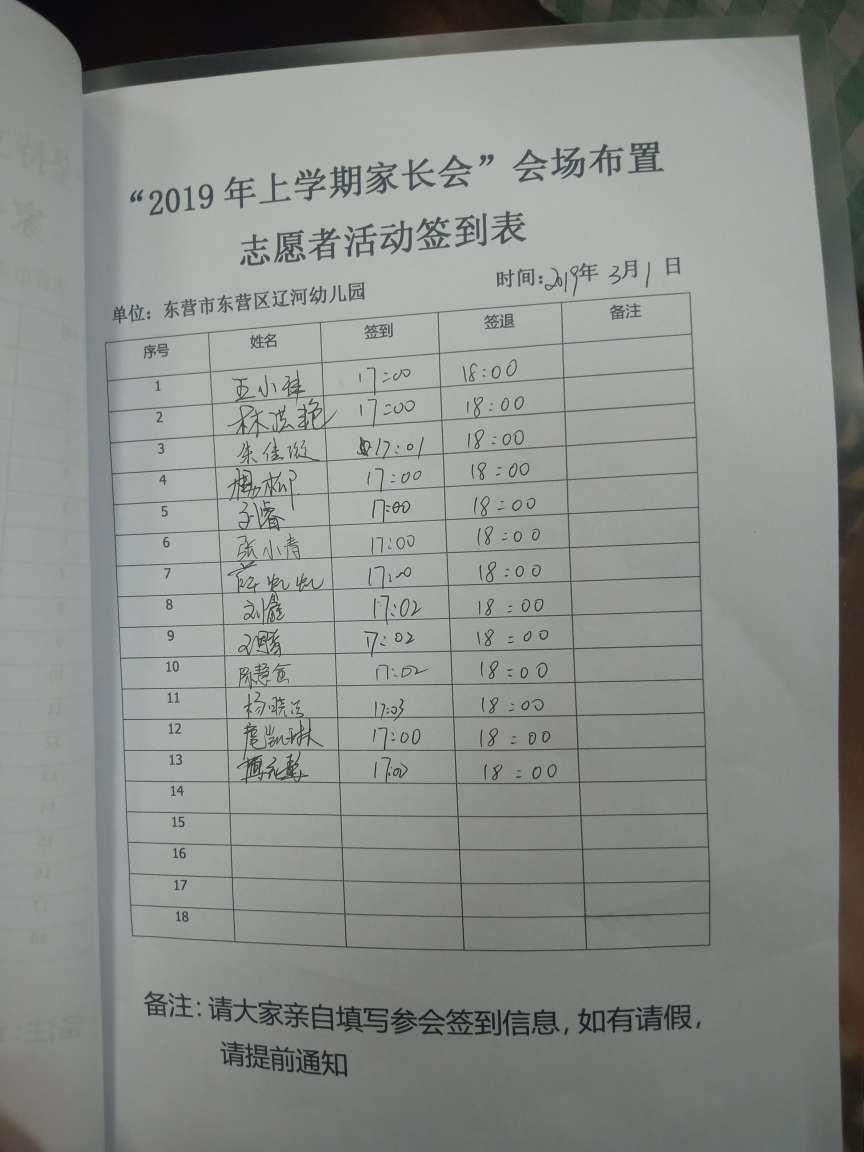 “2019年上学期家长会”会场布置
志愿者活动签到表
单位：东营市东营区辽河幼儿园 时间：2019年3月1日
序号 姓名 签到 签退 备注
1 王小祥 17:00 18:00
2 林洪艳 17:00 18:00
3 朱佳璇 17:01 18:00
4 杨柳 17:00 18:00
5 17:00 18:00
6 张小青 17:00 18:00
7 17:00 18:00
8 刘鑫 17:02 18:00
9 17:02 18:00
10 陈慧 17:02 18:00
11 杨晓 17:03 18:00
12 17:00 18:00
13 17:00 18:00
14
15
16
17
18
备注：请大家亲自填写参会签到信息，如有请假，
请提前通知